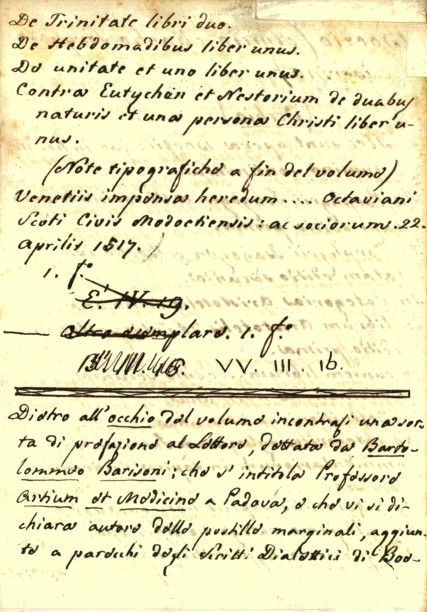 De Trinitate libri duo.
De Hebdomadibus liber unus.
De unitate et uno liber unus.
Contra Eutychen et Nestorium de duabus
naturis et una persona Christi liber u-
nus.
(Note tipografiche a fin del volume)
Venetiis impensa heredum .... Octaviani
Scoti Civis Modoetiensis: ac sociorum. 22.
Aprilis 1517.
1. f.º
E. IV. 19.
altro esemplare. 1. f.º
VV. III. 16.
Dietro all'occhio del volume incontrasi una sor-
ta di prefazione al Lettore, dettata da Barto-
lommeo Barisoni; che s'intitola Professore
Artium et Medicine a Padova, e che vi si di-
chiara autore delle postille marginali, aggiun-
te a parecchi degli Scritti Dialettici di Boe-